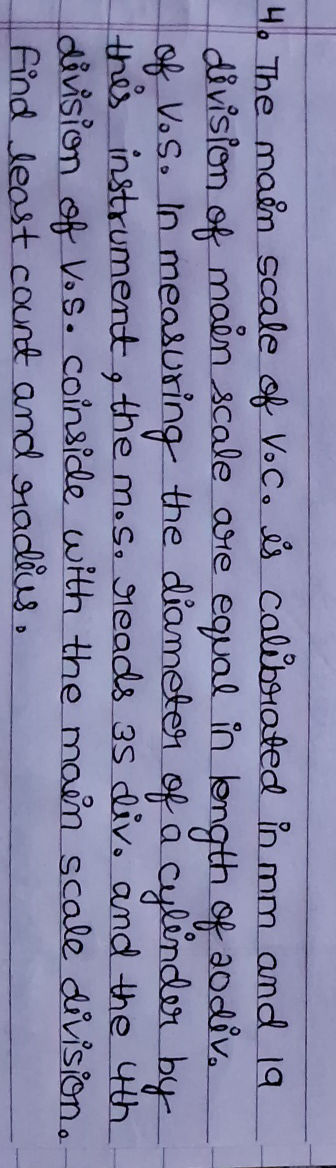 4. The main scale of V.C. is calibrated in mm and 19
division of main scale are equal in length of 20 div.
of V.S. In measuring the diameter of a cylinder by
this instrument, the m.s. reads 35 div. and the 4th
division of V.S. coinside with the main scale division.
Find least count and radius.